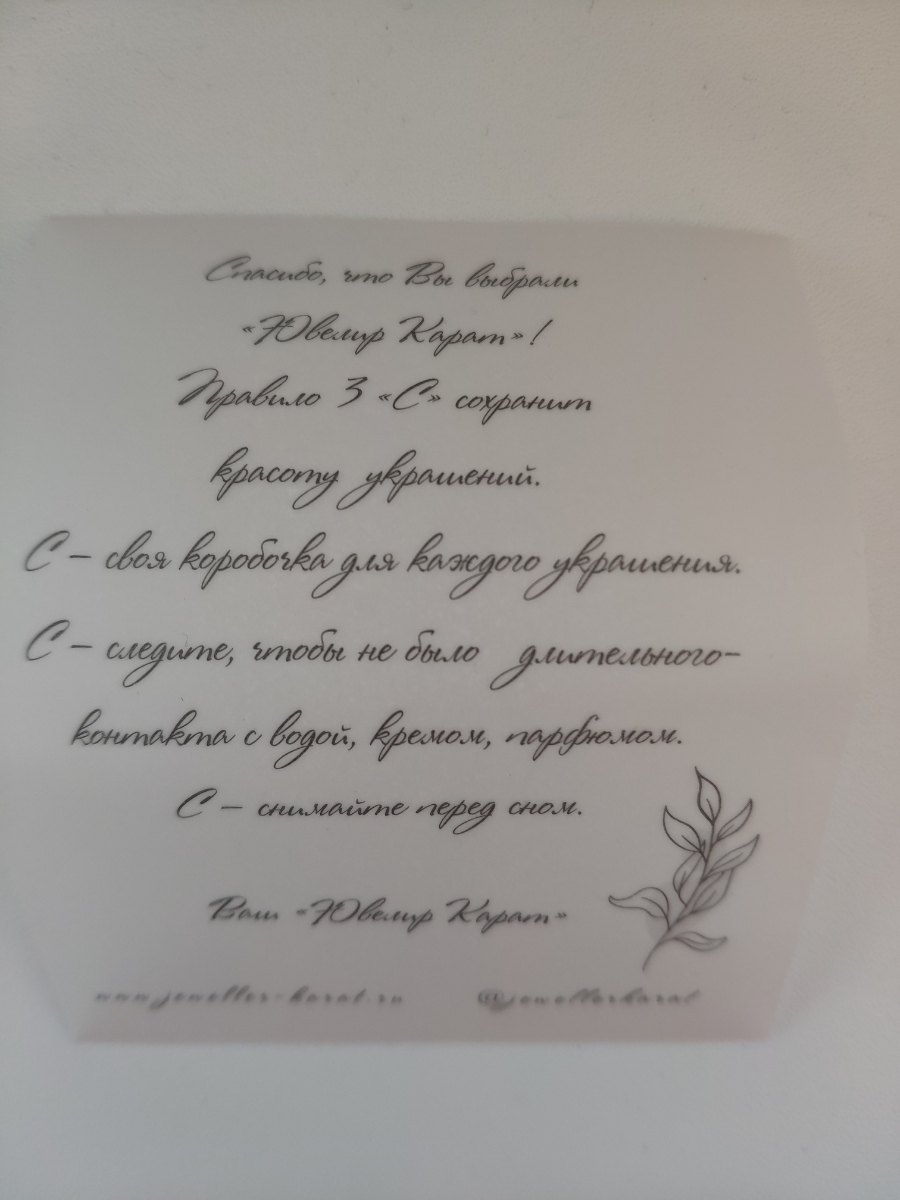 Спасибо, что Вы выбрали
«Ювелир Карат»!
Правило 3 «С» сохранит
красоту украшений.
С – своя коробочка для каждого украшения.
С – следите, чтобы не было длительного-
контакта с водой, кремом, парфюмом.
С – снимайте перед сном.
Ваш «Ювелир Карат»
www.jeweller-karat.ru @jewellerkarat